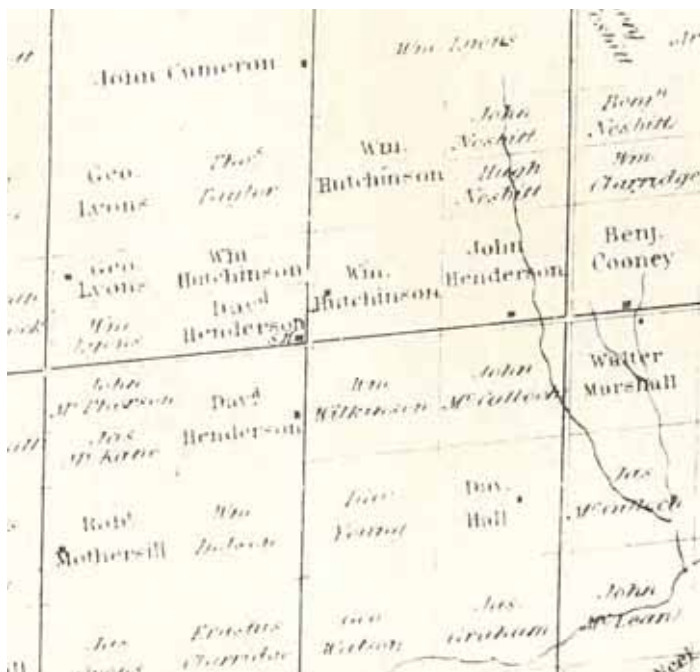 John Cameron
Wm Lyons
Geo.
Lyons
Thos
Taylor
Wm.
Hutchinson
John
Nesbitt
Hugh
Nesbitt
Benjn
Nesbitt
Wm
Clarridge
Geo.
Lyons
Wm
Lyons
Wm
Hutchinson
Davd
Henderson
S.H.
Wm.
Hutchinson
John
Henderson
Benj.
Cooney
John
McPherson
Jas
McKane
Davd
Henderson
Wm
Wilkinson
John
McCulloch
Walter
Marshall
Robt
Mothersill
Wm
Young
Dav.
Hall
Jas
McCulloch
Jas
Erastus
Clarridge
Geo
Watson
Jas.
Graham
John
McLean